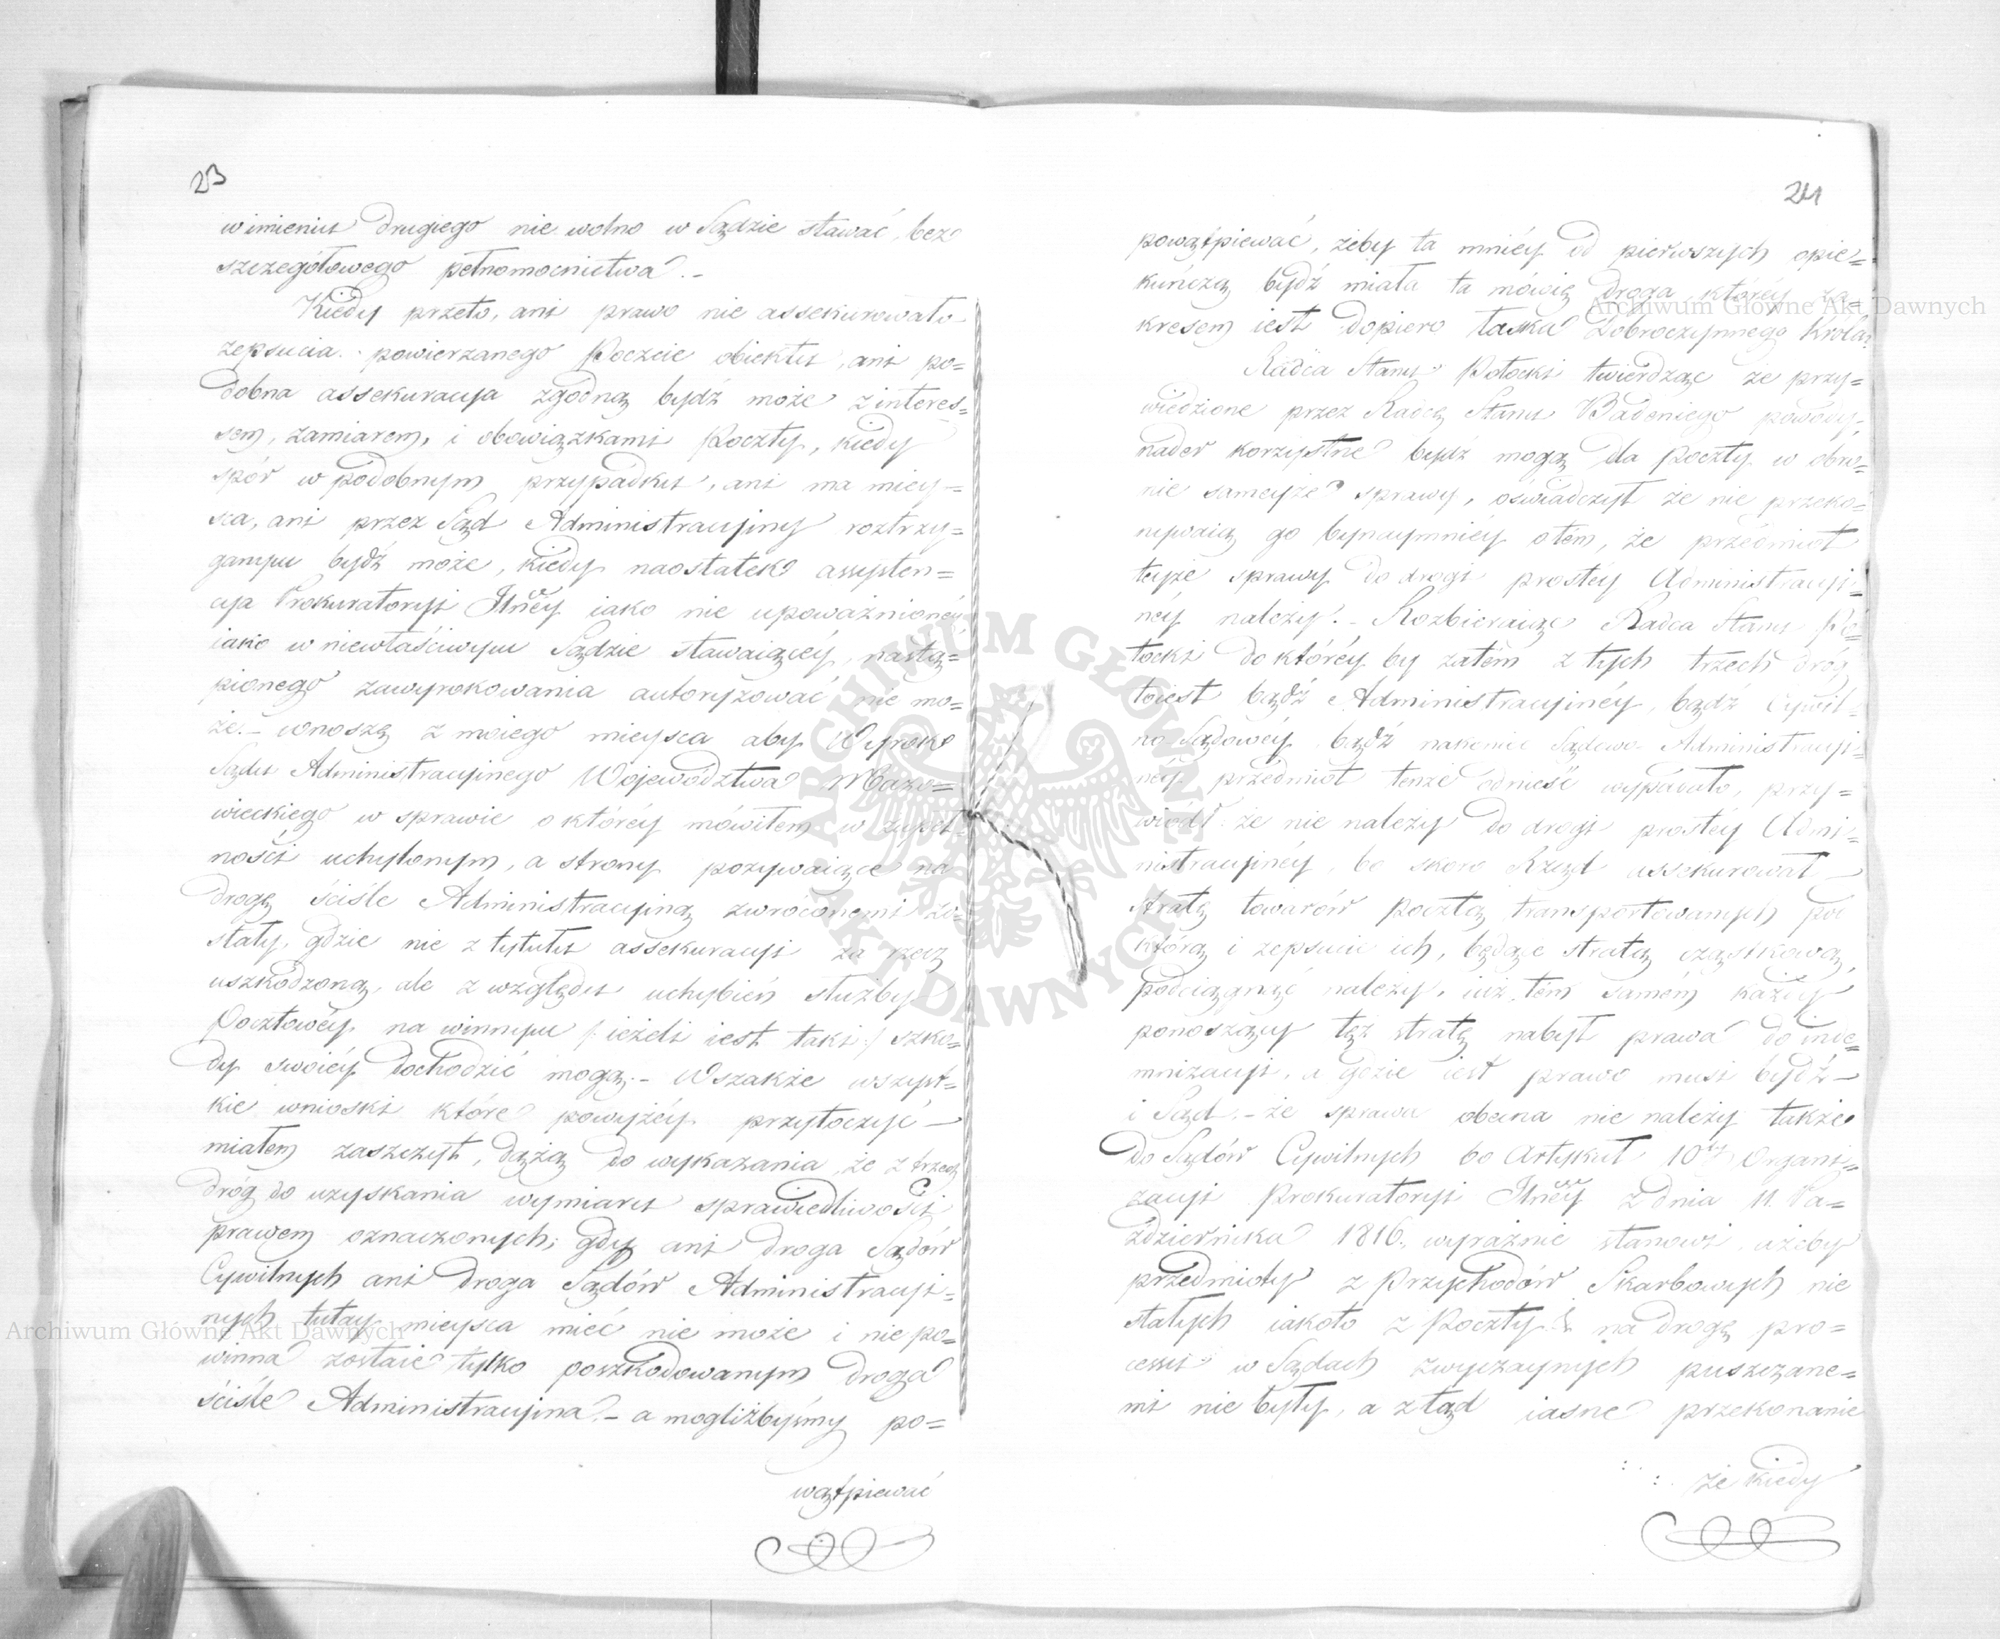 23
w imieniu drugiego nie wolno w Sądzie stawać, bez
szczegółowego pełnomocnictwa. –
Kiedy przeto, ani prawo nie assekurowało
zepsucia powierzanego Poczcie obiektu, ani po=
dobna assekuracyja zgodną bydź może z interes=
sem, zamiarem, i obowiązkami Poczty, kiedy
spór w podobnym przypadku, ani ma miey=
sca, ani przez Sąd Administracyiny roztrzy=
ganym bydź może, kiedy naostatek assysten=
cyja Prokuratoryi Jlnéy iako nie upoważnionéy
iako w niewłaściwym Sądzie stawaiącéy, nastą=
pionego zawyrokowania autoryzować nie mo=
że. – wnoszę z moiego mieysca aby Wyrok
Sądu Administracyinego Województwa Mazo=
wieckiego w sprawie o któréy mówiłem w zupeł=
ności uchylonym, a strony pozywaiące na
drogę ściśle Administracyiną zwróconemi zo=
stały, gdzie nie z tytułu assekuracyi za rzecz
uszkodzoną, ale z względu uchybień służby
Pocztowéy, na winnym /: ieżeli iest taki :/ szko=
dy swoiéy dochodzić mogą. – Wszakże wszyst=
kie wnioski które powyżéy przytoczyć –
miałem zaszczyt, dążą do wykazania, że z trzech
dróg do uzyskania wymiaru sprawiedliwości
prawem oznaczonych; gdy ani droga Sądów
Cywilnych ani droga Sądów Administracyi=
nych tutay mieysca mieć nie może i nie po=
winna zostaie tylko poszkodowanym droga
ściśle Administracyina. – a mogliżbyśmy po=
wątpiewać
24
powątpiewać, żeby ta mniéy od pierwszych opie=
kuńczą bydź miała ta mówię droga któréy za=
kresem iest dopiero łaska Dobroczynnego Króla?
Radca Stanu Potocki twierdząc że przy=
wiedzione przez Radcę Stanu Badeniego powody
nader korzystne bydź mogą dla Poczty w obro=
nie sameyże sprawy, oświadczył że nie przeko=
nywaią go bynaymniéy o tém, że przedmiot
teyże sprawy do drogi prostéy Administracyi=
néy należy. – Rozbieraiąc Radca Stanu Po=
tocki do któréy by zatém z tych trzech dróg
toiest bądź Administracyinéy, bądź Cywil=
no Sądowéy, bądź nakoniec Sądowo Administracyi=
néy przedmiot tenże odnieść wypadało, przy=
wiódł: że nie należy do drogi prostéy Admi=
nistracyinéy, bo skoro Rząd assekurował –
stratę towarów pocztą transportowanych pod
którą i zepsucie ich, będące stratą cząstkową,
podciągnąć należy, iuż tém samém każdy
ponoszący tęż stratę nabył prawa do inde=
mnizacyi, a gdzie iest prawo musi bydź –
i Sąd. – że sprawa obecna nie należy także
do Sądów Cywilnych bo Artykuł 10ty Organi=
zacyi Prokuratoryi Jlnéy z dnia 11. Pa=
ździernika 1816. wyraźnie stanowi, ażeby
przedmioty z Przychodów Skarbowych nie
stałych iakoto z Poczty & na drogę pro=
cessu w Sądach zwyczaynych puszczane=
mi nie były, a ztąd iasne przekonanie
że kiedy
Archiwum Główne Akt Dawnych
Archiwum Główne Akt Dawnych
ARCHIWUM GŁÓWNE AKT DAWNYCH